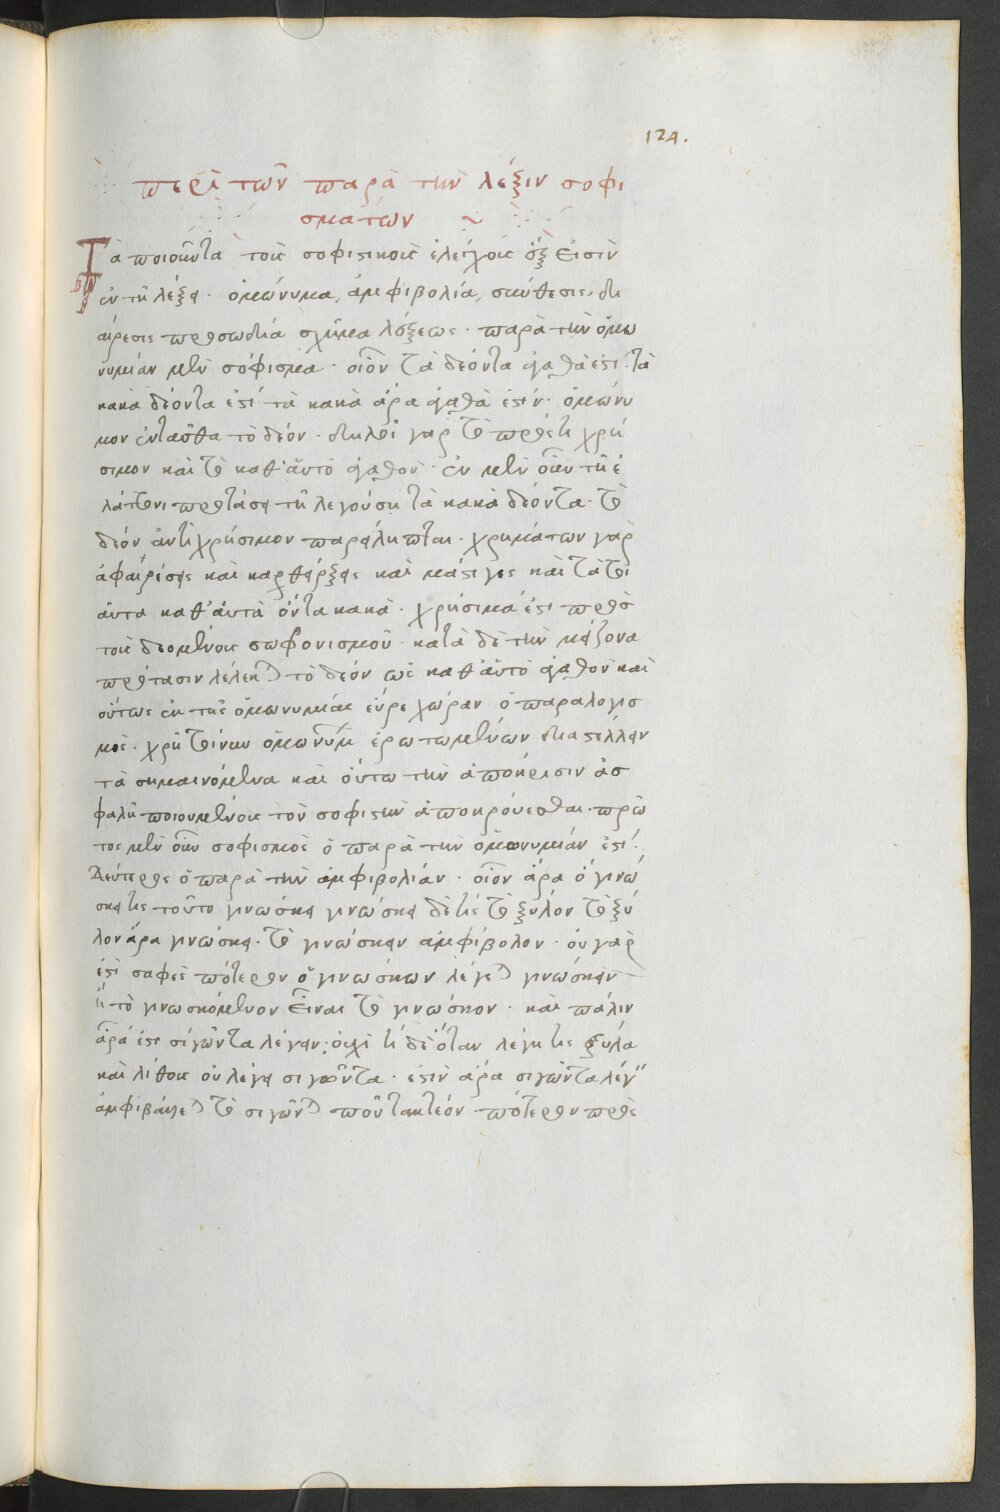 124.
περὶ τῶν παρὰ τὴν λέξιν σοφι
σμάτων ~
Τὰ ποιοῦντα τοὺς σοφιστικοὺς ἐλέγχους ἕξ εἰσὶν
ἐν τῇ λέξει· ὁμώνυμα, ἀμφιβολία, σύνθεσις, δι
αίρεσις προσωδία σχῆμα λέξεως· παρὰ τὴν ὁμω
νυμίαν μὲν σόφισμα· οἷον τὰ δέοντα ἀγαθὰ ἐστί· τὰ
κακὰ δέοντα ἐστί τὰ κακὰ ἄρα ἀγαθὰ ἐστίν· ὁμώνυ
μον ἐνταῦθα τὸ δέον· δηλοῖ γὰρ τό χρή
σιμον καὶ τὸ καθ' αὑτὸ ἀγαθὸν· ἐν μὲν οὖν τῇ ἐ
λάττονι προτάσει τῇ λεγούσῃ τὰ κακὰ δέοντα· τὸ
δέον ἀντὶ χρήσιμον παρείληπται· χρημάτων γὰρ
ἀφαιρέσεις καὶ καθείρξεις καὶ μάστιγες καὶ τὰ τοι
αῦτα καθ' αὑτὰ ὄντα κακὰ· χρήσιμά ἐστι πρὸς
τοὺς δεομένους σωφρονισμοῦ· κατὰ δὲ τὴν μείζονα
πρότασιν λέλεκται τὸ δέον ὡς καθ' αὑτὸ ἀγαθὸν καὶ
οὕτως ἐκ τῆς ὁμωνυμίας εὗρε χώραν ὁ παραλογισ
μός· χρὴ τοίνυν ὁμωνύμων ἐρωτωμένων διαστέλλειν
τὰ σημαινόμενα καὶ οὕτω τὴν ἀπόκρισιν ἀσ
φαλῆ ποιουμένους τὸν σοφιστὴν ἀποκρούεσθαι· πρῶ
τος μὲν οὖν σοφισμὸς ὁ παρὰ τὴν ὁμωνυμίαν ἐστί·
Δεύτερος ὁ παρὰ τὴν ἀμφιβολίαν· οἷον ἆρα ὁ γινώ
σκει τὶς τοῦτο γινώσκει γινώσκει δὲ τὶς τὸ ξύλον τὸ ξύ
λον ἄρα γινώσκει· τὸ γινώσκειν ἀμφίβολον· οὐ γὰρ
ἐστὶ σαφὲς πότερον ὁ γινώσκων λέγεται γινώσκειν
ἢ τὸ γινωσκόμενον εἶναι τὸ γινώσκον· καὶ πάλιν
ἆρά ἐστι σιγῶντα λέγειν; οὐχὶ τί δὲ ὅταν λέγῃ τις ξύλα
καὶ λίθους οὐ λέγει σιγῶντα· ἐστὶν ἄρα σιγῶντα λέγειν
ἀμφιβάλλεται τὸ σιγῶντα ποῦ τακτέον· πότερον πρὸς